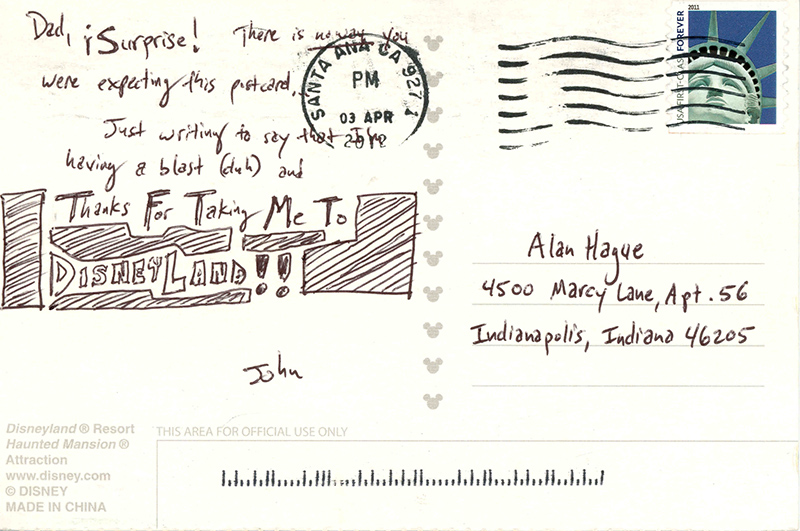 Dad, ¡Surprise! There is no way you
were expecting this postcard.
Just writing to say that I'm
having a blast (duh) and
Thanks For Taking Me To
DISNEYLAND!!
John
Disneyland® Resort
Haunted Mansion®
Attraction
www.disney.com
© DISNEY
MADE IN CHINA
SANTA ANA CA
PM
03 APR
2012
2011
USA FIRST-CLASS FOREVER
Alan Hague
4500 Marcy Lane, Apt. 56
Indianapolis, Indiana 46205
THIS AREA FOR OFFICIAL USE ONLY